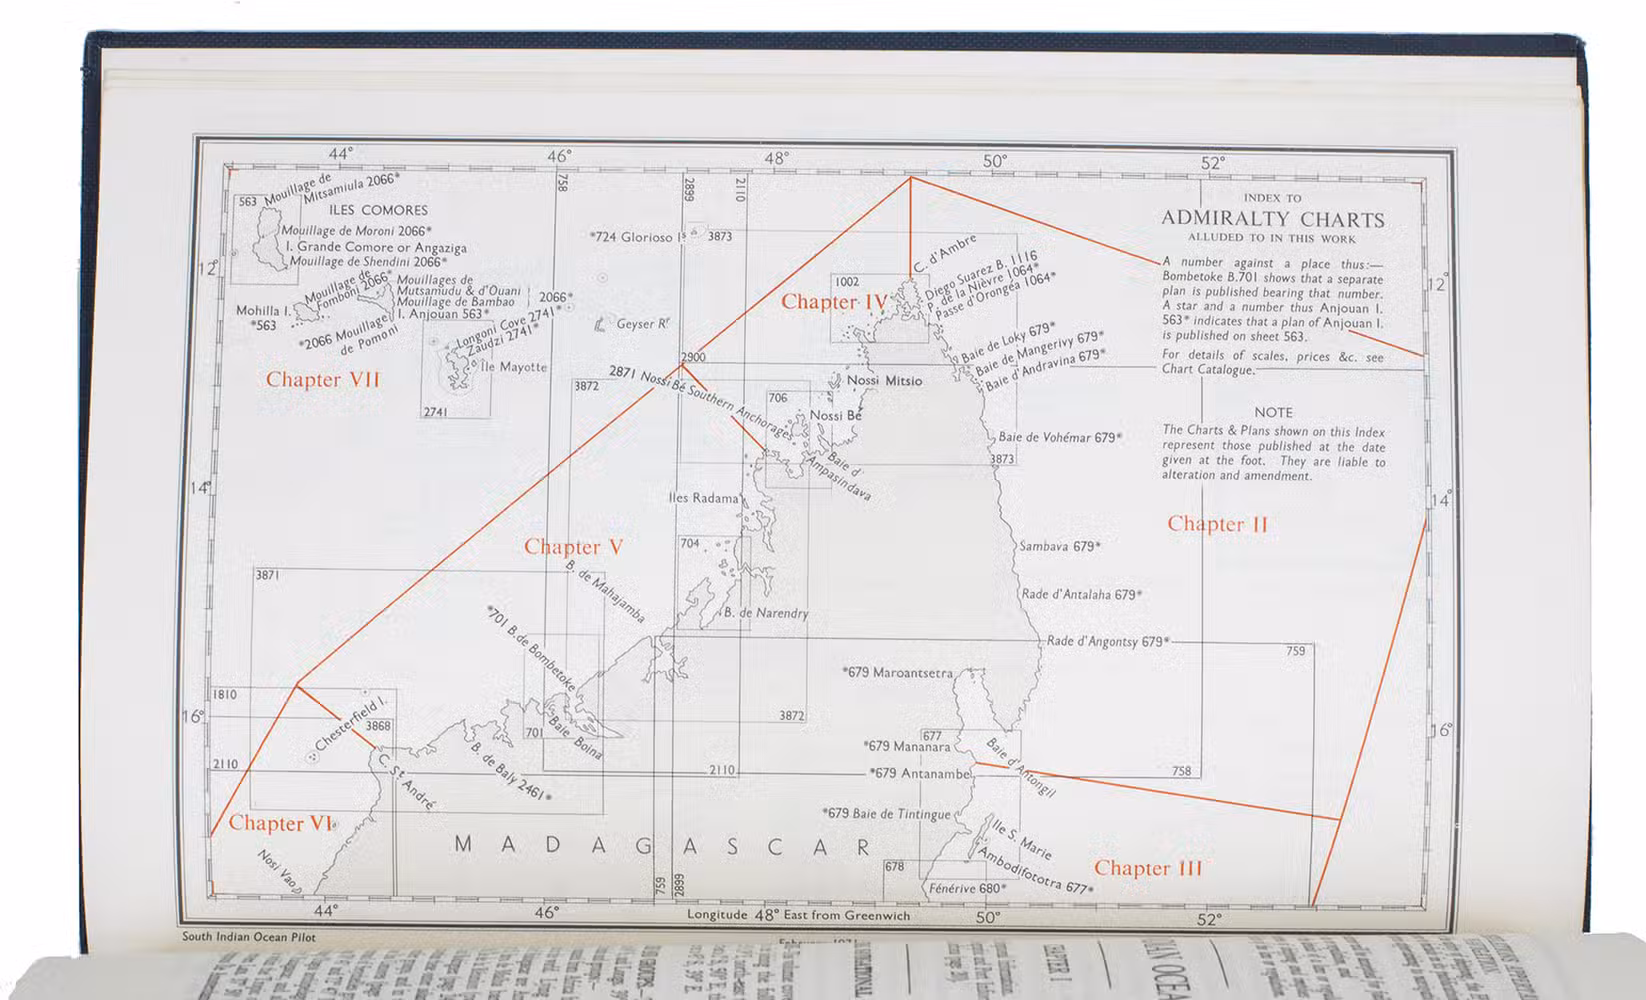 44°
46°
48°
50°
52°
758
2899
2110
563
Mouillage de
Mitsamiula 2066*
ILES COMORES
Mouillage de Moroni 2066*
I. Grande Comore or Angaziga
Mouillage de Shendini 2066*
12°
Mouillage de
Fomboni 2066*
Mouillages de
Mutsamudu & d'Ouani
Mouillage de Bambao
2066*
I. Anjouan 563*
Mohilla I.
*563
*2066 Mouillage
de Pomoni
Longoni Cove 2741*
Zaudzi 2741*
Ile Mayotte
2741
Chapter VII
*724 Glorioso Is
3873
Geyser Rf
2900
3872
2871 Nossi Bé Southern Anchorages
C. d'Ambre
1002
Chapter IV
Diego Suarez B. 1116
P. de la Nièvre 1064*
Passe d'Orongéa 1064*
Baie de Loky 679*
Baie de Mangerivy 679*
Baie d'Andravina 679*
Nossi Mitsio
706
Nossi Bé
Baie d'
Ampasindava
Baie de Vohémar 679*
3873
INDEX TO
ADMIRALTY CHARTS
ALLUDED TO IN THIS WORK
A number against a place thus:—
Bombetoke B.701 shows that a separate
plan is published bearing that number.
A star and a number thus Anjouan I.
563* indicates that a plan of Anjouan I.
is published on sheet 563.
For details of scales, prices &c. see
Chart Catalogue.
12°
NOTE
The Charts & Plans shown on this Index
represent those published at the date
given at the foot. They are liable to
alteration and amendment.
14°
14°
Iles Radama
Chapter II
Chapter V
704
Sambava 679*
3871
B. de Mahajamba
Rade d'Antalaha 679*
*701 B. de Bombetoke
B. de Narendry
Rade d'Angontsy 679*
759
*679 Maroantsetra
1810
16°
Chesterfield I.
3868
3872
701
Baie Boina
677
*679 Mananara
Baie d'Antongil
16°
2110
C. St André
B. de Baly 2461*
2110
*679 Antanambe
758
*679 Baie de Tintingue
Chapter VI
MADAGASCAR
Ile S. Marie
Ambodifototra 677*
Chapter III
Nosi Vao
678
Fénérive 680*
759
2899
44°
46°
Longitude 48° East from Greenwich
50°
52°
South Indian Ocean Pilot
CHAPTER I